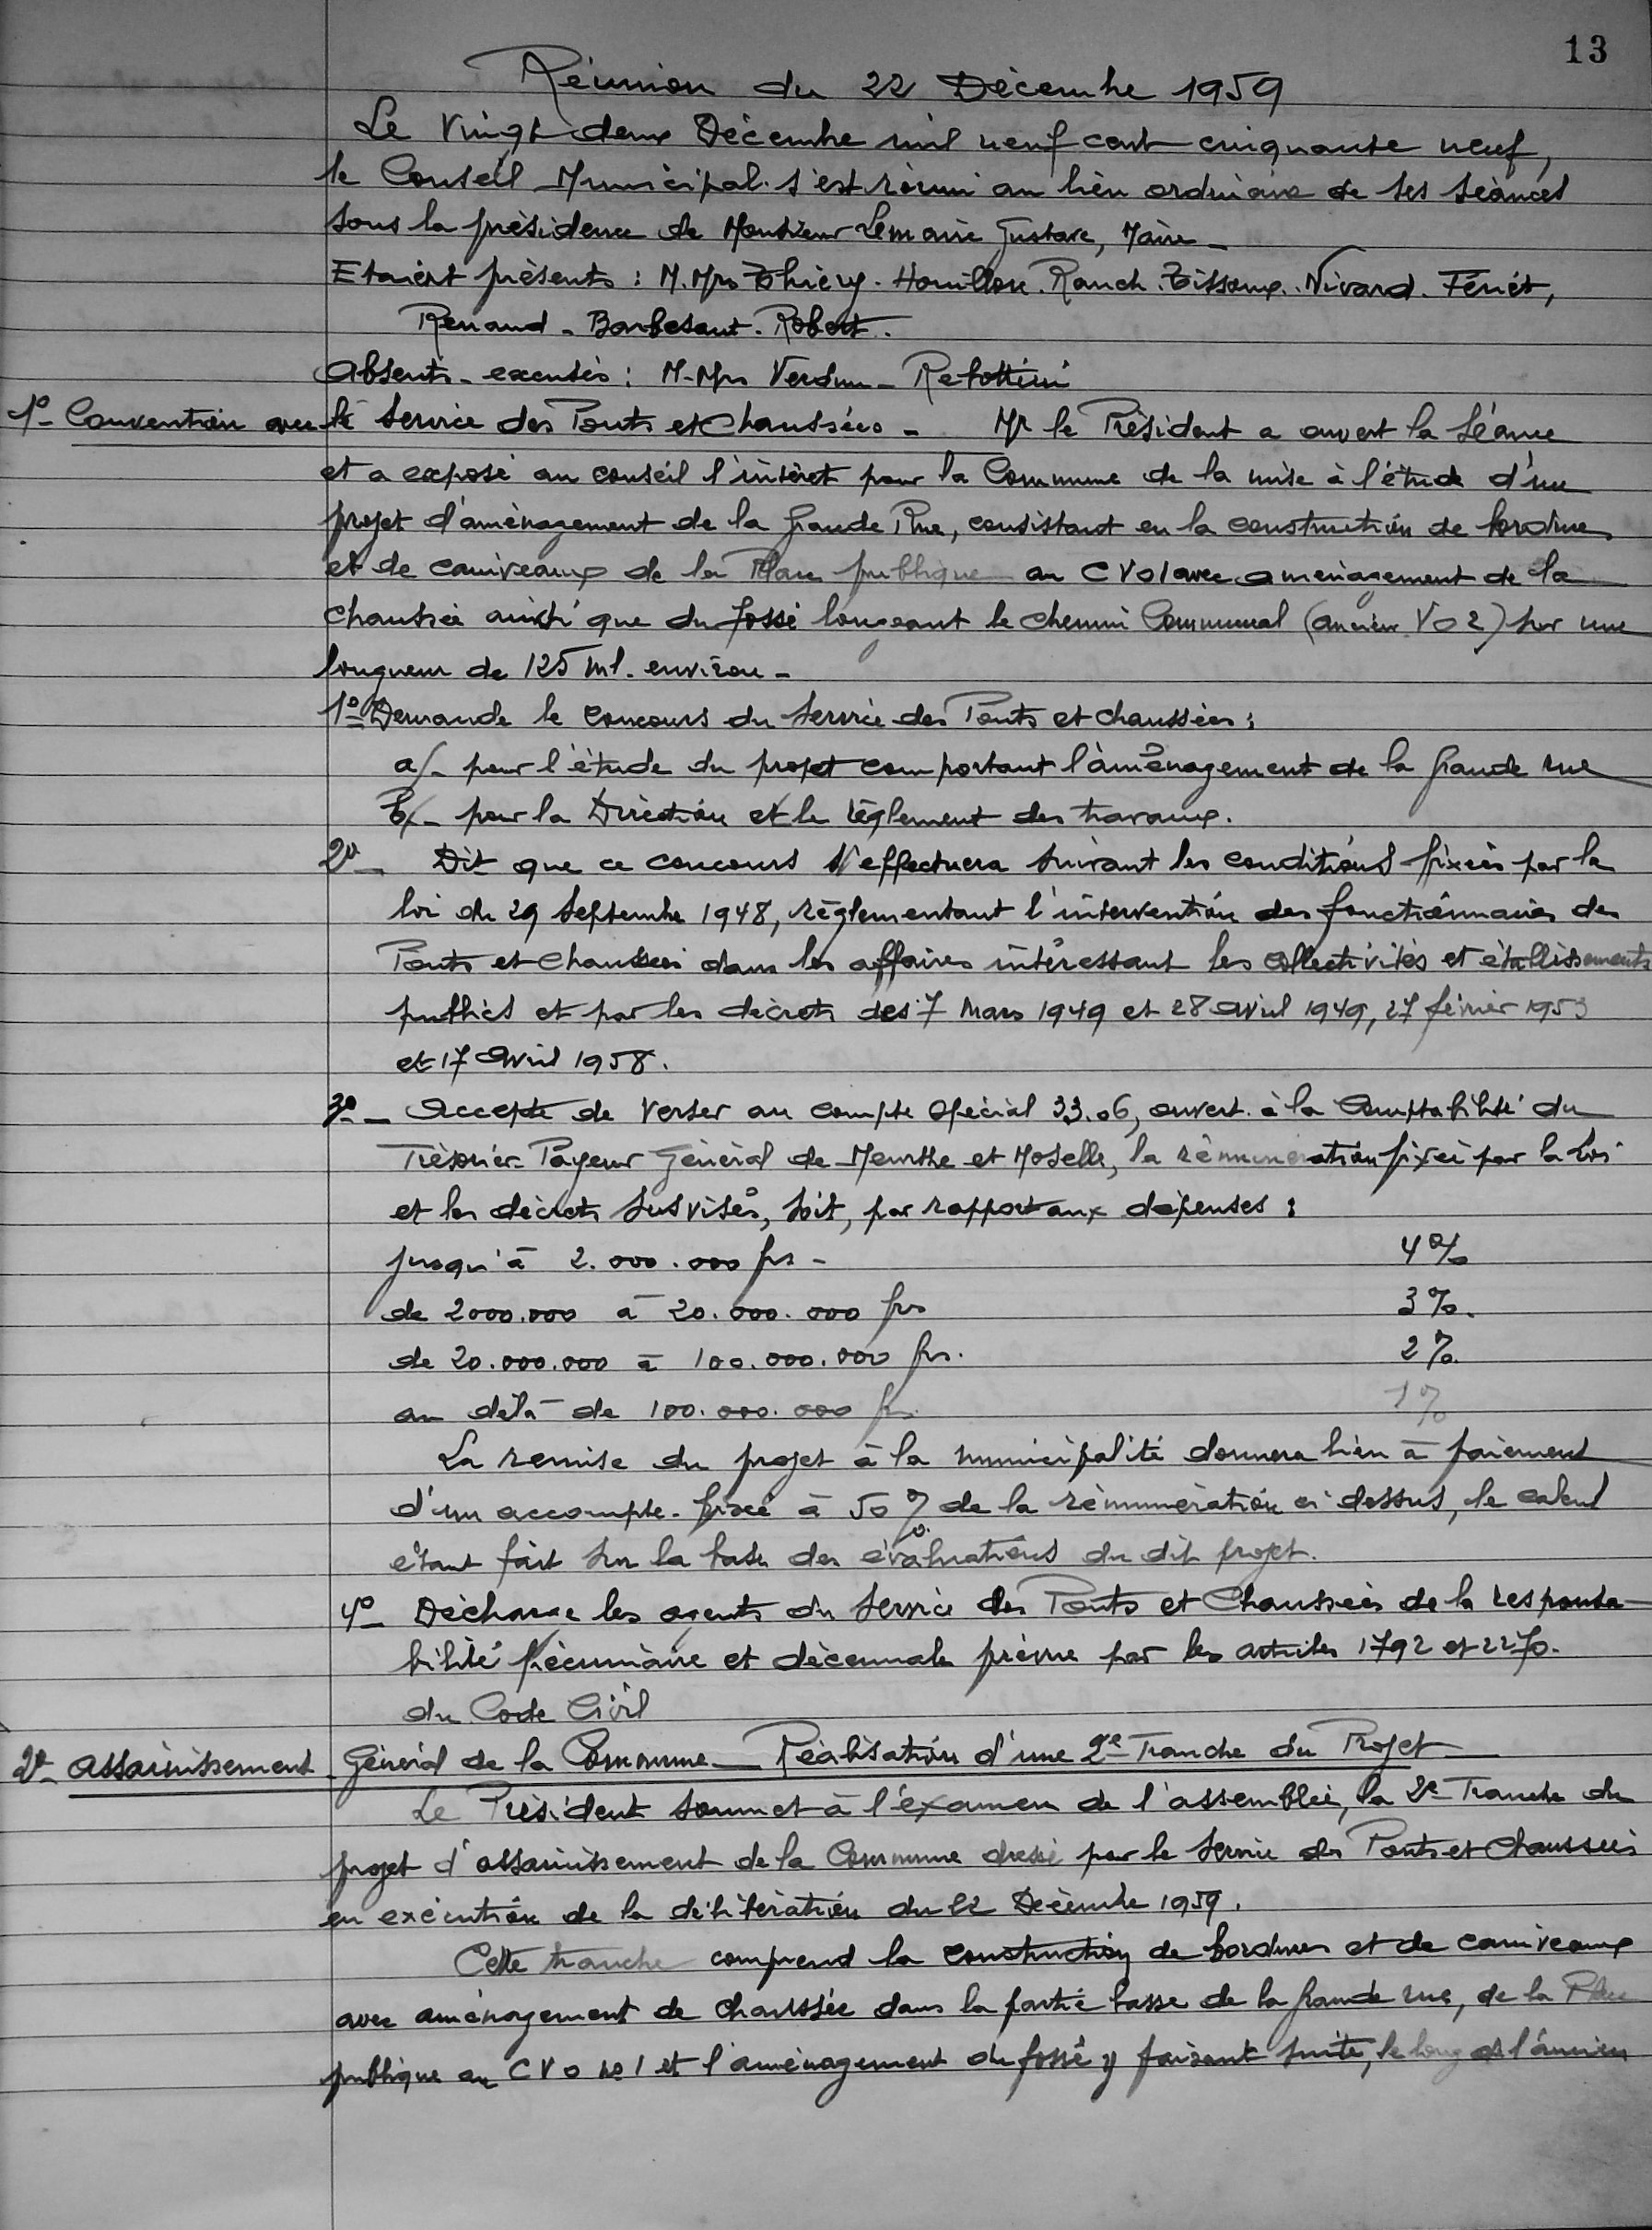 13
Réunion du 22 Décembre 1959
Le Vingt deux Décembre mil neuf cent cinquante neuf,
le Conseil Municipal s'est réuni au lieu ordinaire de ses séances
sous la présidence de Monsieur Lemaire Gustave, Maire _
Etaient présents : M. Mrs Thiéry. Houillon. Rauch. Tissoux. Nivard. Fériet,
Renaud - Barbesant. Robert.
Absents - excusés : M-Mrs Verdun - Rebottini
1º- Convention avec le Service des Ponts et Chaussées - Mr le Président a ouvert la séance
et a exposé au conseil l'intérêt pour la Commune de la mise à l'étude d'un
projet d'aménagement de la Grande Rue, consistant en la construction de bordures
et de caniveaux de la Place publique au CVO1 avec aménagement de la
chaussée ainsi que du fossé longeant le chemin Communal (ancien VO2) sur une
longueur de 125 ml. environ -
1º Demande le concours du Service des Ponts et chaussées :
a/- pour l'étude du projet comportant l'aménagement de la Grande rue
b/- pour la Direction et le règlement des travaux.
2º- Dit que ce concours s'effectuera suivant les conditions fixées par la
loi du 29 Septembre 1948, règlementant l'intervention des fonctionnaires des
Ponts et Chaussées dans les affaires intéressant les collectivités et établissements
publics et par les décrets des 7 Mars 1949 et 28 avril 1949, 27 février 1953
et 17 avril 1958.
3º- Accepte de verser au compte spécial 33.06, ouvert à la Comptabilité du
Trésorier Payeur Général de Meurthe et Moselle, la rémunération fixée par la loi
et les décrets susvisés, soit, par rapport aux dépenses :
jusqu'à 2.000.000 frs - 4%
de 2000.000 à 20.000.000 frs 3%.
de 20.000.000 à 100.000.000 frs. 2%.
au delà de 100.000.000 frs. 1%
La remise du projet à la municipalité donnera lieu à paiement
d'un accompte fixé à 50% de la rémunération ci dessus, le calcul
étant fait sur la base des évaluations du dit projet.
4º- Décharge les agents du Service des Ponts et Chaussées de la responsa-
bilité pécuniaire et décennale prévue par les articles 1792 et 2270.
du Code Civil
2º- Assainissement Général de la Commune - Réalisation d'une 2e Tranche du Projet
Le Président soumet à l'examen de l'assemblée, la 2e Tranche du
projet d'assainissement de la Commune dressé par le Service des Ponts et Chaussées
en exécution de la délibération du 22 Décembre 1959.
Cette tranche comprend la construction de bordures et de caniveaux
avec aménagement de chaussée dans la partie basse de la Grande rue, de la Place
publique au CVO nº 1 et l'aménagement du fossé y faisant suite, le long de l'ancien